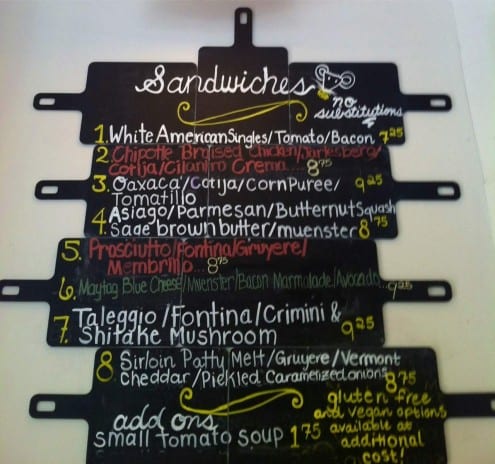 Sandwiches
no
substitutions
1. White American Singles/Tomato/Bacon 7.25
2. Chipotle Braised Chicken/Jarlesberg/
Cotija/Cilantro Crema.....8.75
3. Oaxaca/Cotija/Corn Puree/ 9.25
Tomatillo
4. Asiago/Parmesan/Butternut Squash
Sage brown butter/muenster 8.75
5. Prosciutto/Fontina/Gruyere/
Membrillo...8.75
6. Maytag Blue Cheese/Muenster/Bacon Marmalade/Avocado...9.25
7. Taleggio/Fontina/Crimini &
Shitake Mushroom 9.25
8. Sirloin Patty Melt/Gruyere/Vermont
Cheddar/Pickled Caramelized onions 8.75
add ons
small tomato soup 1.75
gluten free
and vegan options
available at
additional
cost!